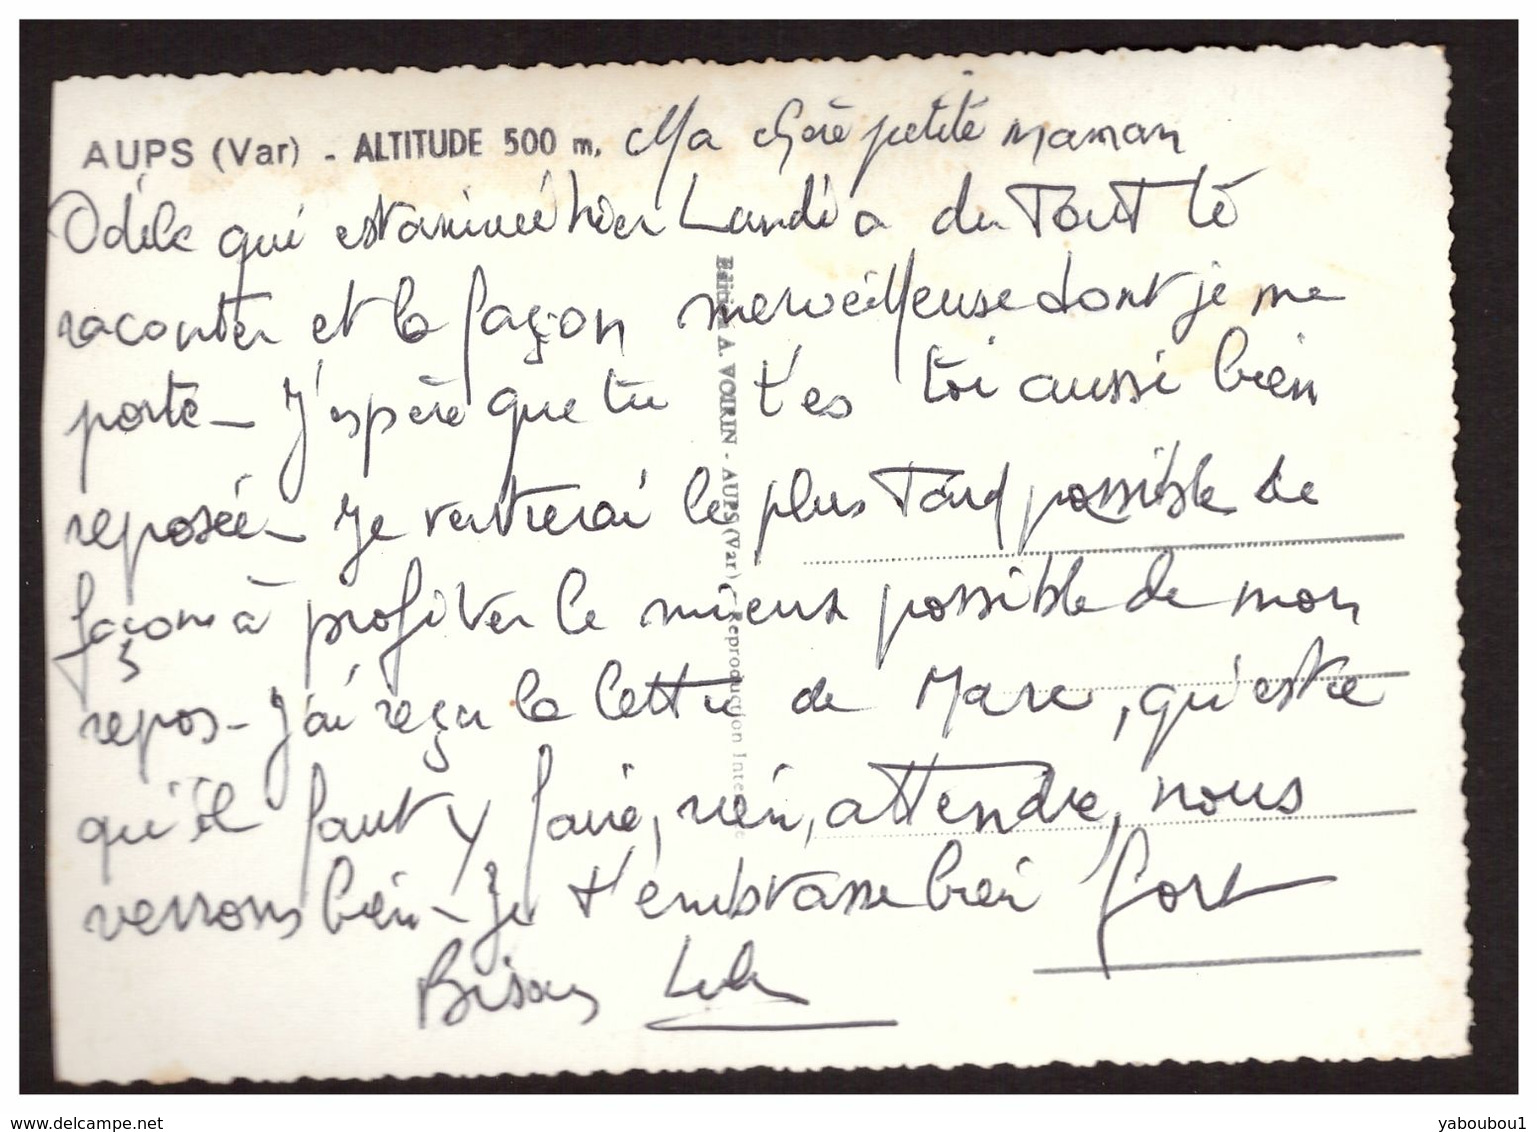 AUPS (Var) - ALTITUDE 500 m.
Ma chère petite maman
Odile qui est arrivée hier Lundi a du tout te
raconter et la façon merveilleuse dont je me
porte - J'espère que tu t'es toi aussi bien
reposée - Je rentrerai le plus tard possible de
façon à profiter le mieux possible de mon
repos - J'ai reçu la lettre de Marc, qu'est ce
qu'il faut y faire, rien, attendre, nous
verrons bien - Je t'embrasse bien fort
Bisous
Edition A. VOIRIN - AUPS (Var) - Reproduction Inte
yaboubou1